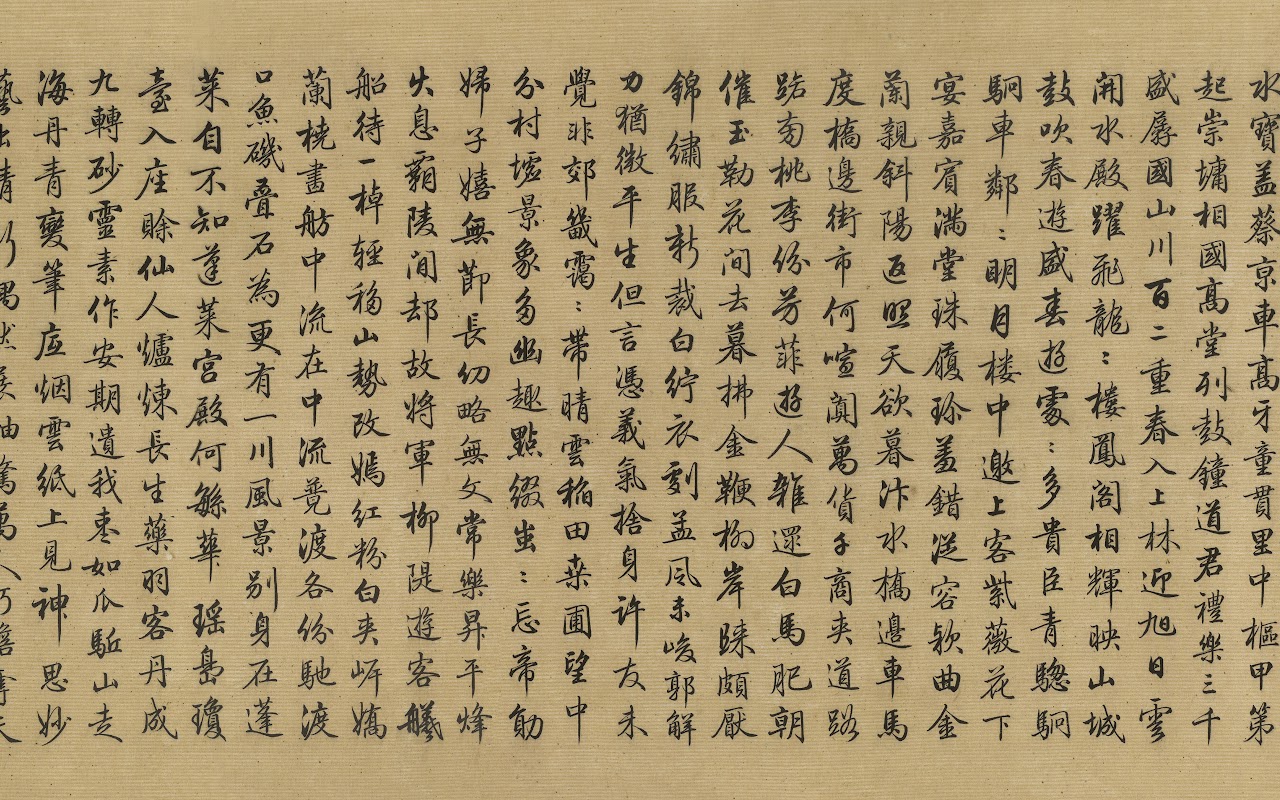 水寶盖蔡京車高牙童貫里中樞甲第
起崇墉相國高堂列鼓鐘道君禮樂三千
盛孱國山川百二重春入上林迎旭日雲
開水殿躍飛龍〻樓鳳阁相輝映山城
鼓吹春遊盛春遊處〻多貴臣青驄駉
駉車鄰〻明月楼中邀上客紫薇花下
宴嘉賓满堂珠履珎羞錯従容欵曲金
蘭親斜陽返照天欲暮汴水橋邊車馬
度橋邊街市何喧闐萬貨千商夹道路
路旁桃李份芳菲遊人雜遝白馬肥朝
催玉勒花间去暮拂金鞭柳岸䠱頗厭
錦繡服新裁白紵衣刻孟风未峻郭解
刀猶微平生但言憑義氣捨身許友未
覺非郊畿靄〻帶晴雲稲田桒圃望中
分村墟景象多幽趣點缀出〻忘帝勛
婦子嬉無節長幼略無文常樂昇平烽
火息霸陵间却故将軍柳隄遊客艤
船待一棹輕移山勢改嫣红粉白夹岍嬌
蘭桡畫舫中流在中流競渡各份馳渡
口魚磯叠石為更有一川風景别身在蓬
莱自不知蓬莱宮殿何繇華瑶島瓊
臺入座賒仙人爐煉長生藥羽客丹成
九轉砂靈素作安期遺我枣如瓜駈山走
海丹青變筆应烟雲紙上見神思妙